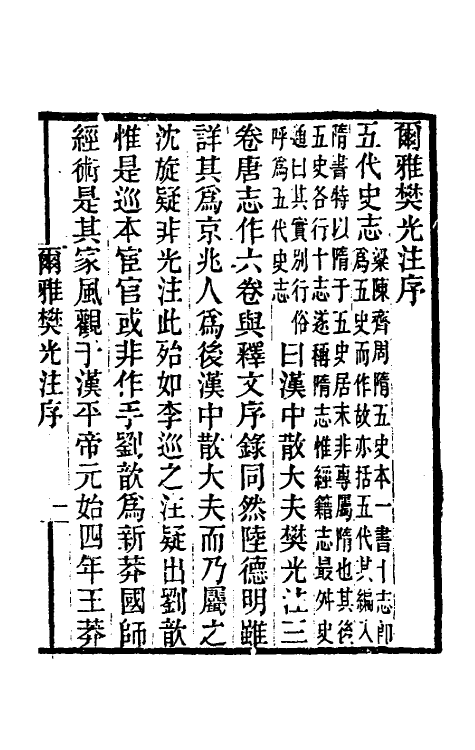 爾雅樊光注序
五代史志梁陳齊周隋五史本一書十志卽
爲五史而作故亦括五代其編入
隋書特以隋于五史居末非專屬隋也其後
五史各行十志遂稱隋志惟經籍志最舛史
通曰其實別行俗
呼爲五代史志
曰漢中散大夫樊光注三
卷唐志作六卷與釋文序錄同然陸德明雖
詳其爲京兆人爲後漢中散大夫而乃屬之
沈旋疑非光注此殆如李巡之注疑出劉歆
惟是巡本宦官或非作手劉歆爲新莽國師
經術是其家風觀于漢平帝元始四年王莽
爾雅樊光注序
一